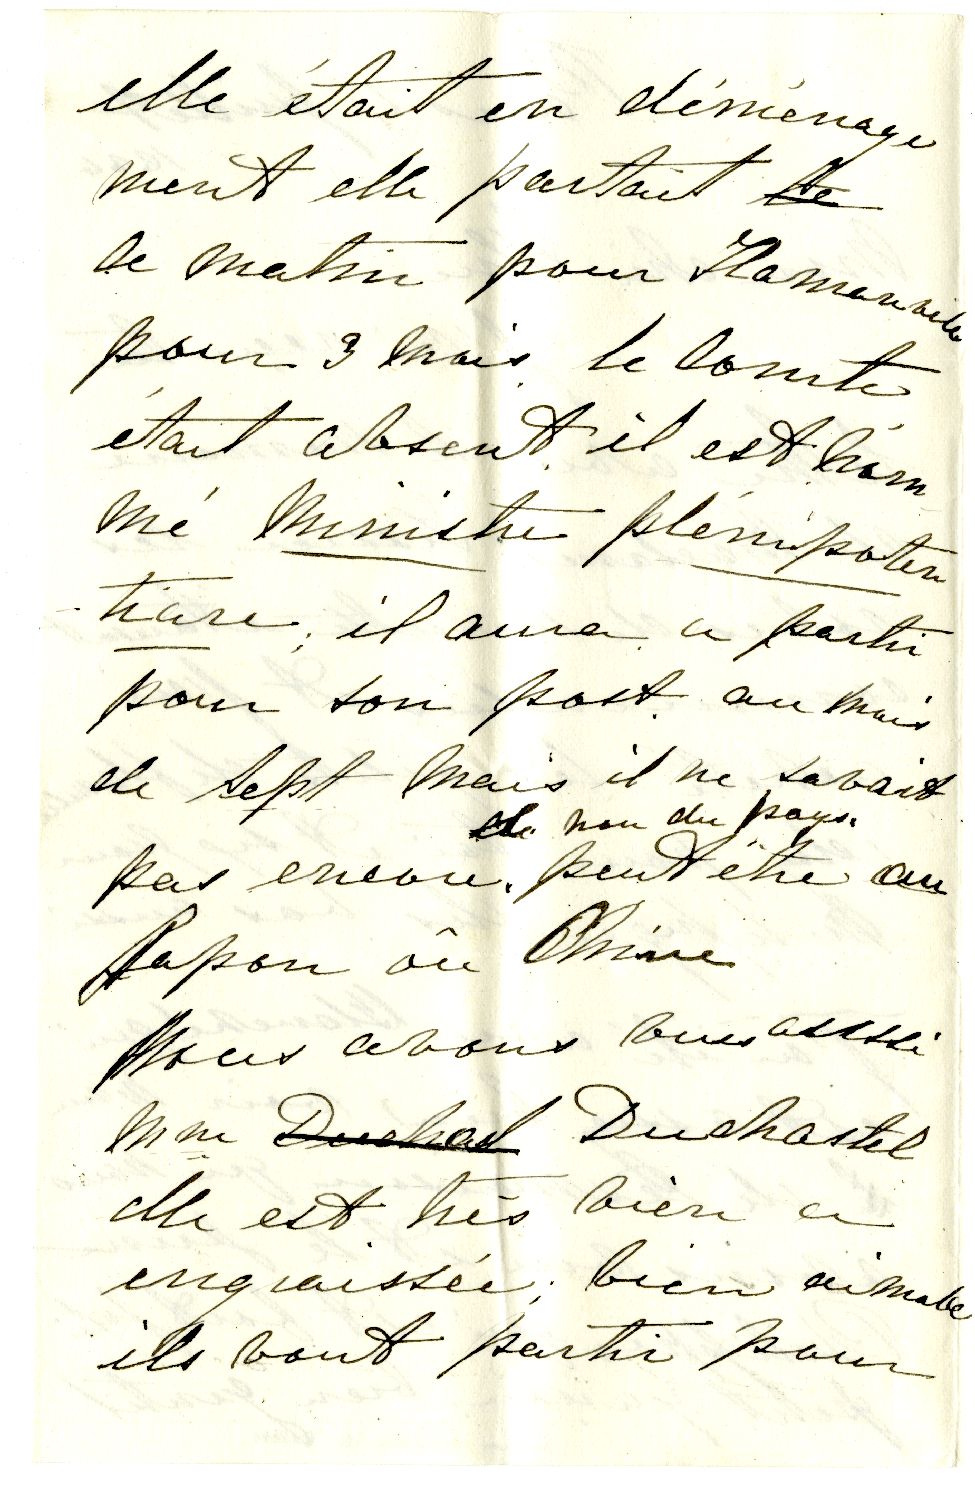 elle était en déménage
ment elle partait le
le matin pour Flamanville
pour 3 mois. le Comte
était absent. il est nom
mé Ministre plénipoten
tiare, il aura a partir
pour son post. au mois
de Sept mais il ne savait
le non du pays.
pas encore. peut être au
Japon ôu Chine
Nous avons vues aussi
Mme Duchast Duchastel
elle est très bien a
engraissée, bien aimabe
ils vont partir pour